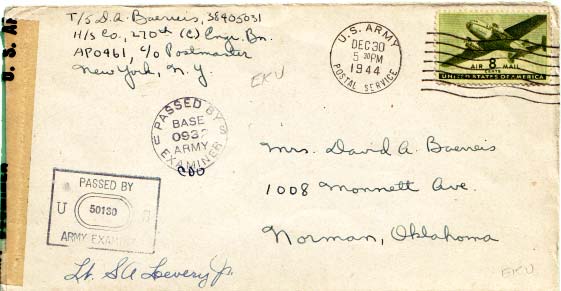 T/5 D.A. Baerreis, 38405031
H/S Co., 270th (C) Engr. Bn.
APO 461, c/o Postmaster
New York, N.Y.
EKU
U.S. ARMY
DEC 30
5 30PM
1944
POSTAL SERVICE
AIR 8 MAIL
CENTS
UNITED STATES OF AMERICA
PASSED BY
BASE
ARMY
EXAMINER
Mrs. David A. Baerreis
1008 Monnett Ave.
Norman, Oklahoma
PASSED BY
U 50180
ARMY
Lt. SA Jr.
EKU